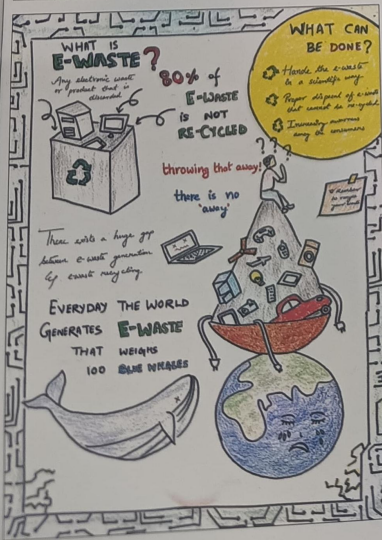 WHAT IS
E-WASTE?
Any electronic waste
or product that is
discarded
80% of
E-WASTE
IS NOT
RE-CYCLED
WHAT CAN
BE DONE?
Handle the e-waste
in a scientific way
Proper disposal of e-waste
that cannot be re-cycled
Increasing awareness
among of consumers
? ? ?
throwing that away!
there is no
'away'
to recycle
There exists a huge gap
between e-waste generation
& ewaste recycling.
EVERYDAY THE WORLD
GENERATES E-WASTE
THAT WEIGHS
100 BLUE WHALES